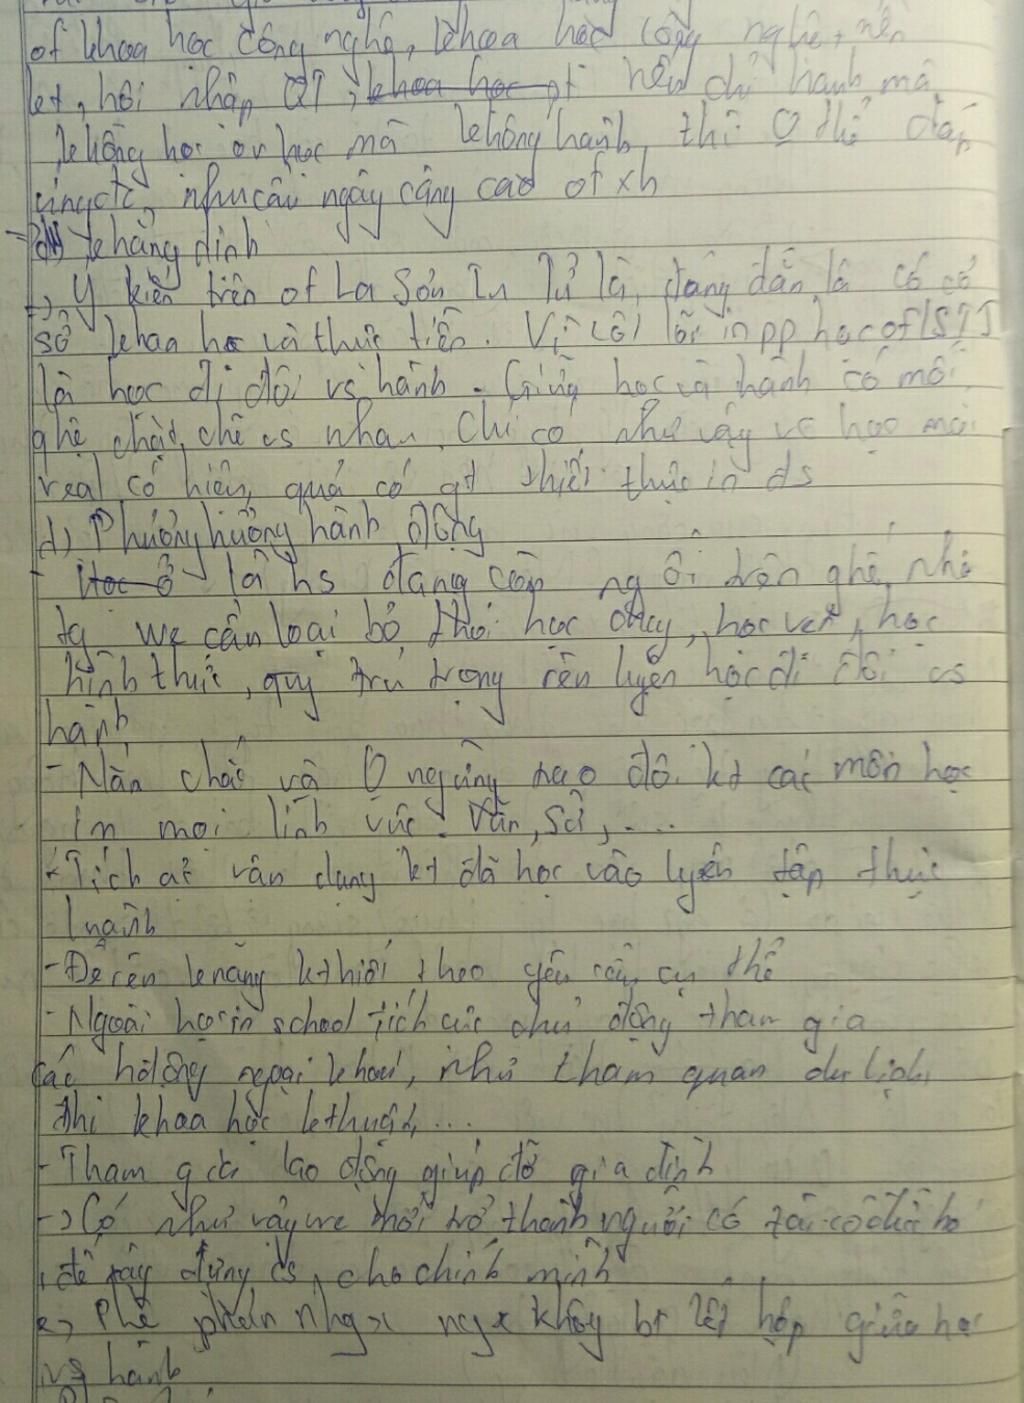 of khoa học công nghệ, khoa học công nghệ, nền
kt, hội nhập QT, khoa học pt nếu chỉ hành mà
không học or học mà không hành thì 0 thể đáp
ứng đc nhu cầu ngày càng cao of xh
khẳng định
-> Ý kiến trên of La Sơn Tử là đúng đắn là có cơ
sở khoa học và thực tiễn. Vì cốt lõi in pp học of LSPT
là học đi đôi vs hành. Giữa học và hành có mối
qhệ chặt chẽ vs nhau. Chỉ có như vậy vc học mới
real có hiệu quả có gt thiết thực in ds
d) Phương hướng hành động
- Học ở là hs đang còn ngồi trên ghế nhà
tg we cần loại bỏ thói học chay, học vẹt, học
hình thức, trú trọng rèn luyện học đi đôi vs
hành
- Nắm chắc và 0 ngừng trao dồi kt các môn học
in mọi lĩnh vực: Văn, Sử, ....
- Tích cực vận dụng kt đã học vào luyện tập thực
hành
- Để rèn kĩ năng theo yêu cầu cụ thể
- Ngoài học in school tích cực chủ động tham gia
các hđộng ngoại khoá, như tham quan du lịch,
thi khoa học kthuật, ...
- Tham gia lao động giúp đỡ gia đình
-> Có như vậy we mới trở thành người có tài có
để xây dựng cs cho chính mình
e) Phê phán không bt kết hợp giữa học
vs hành